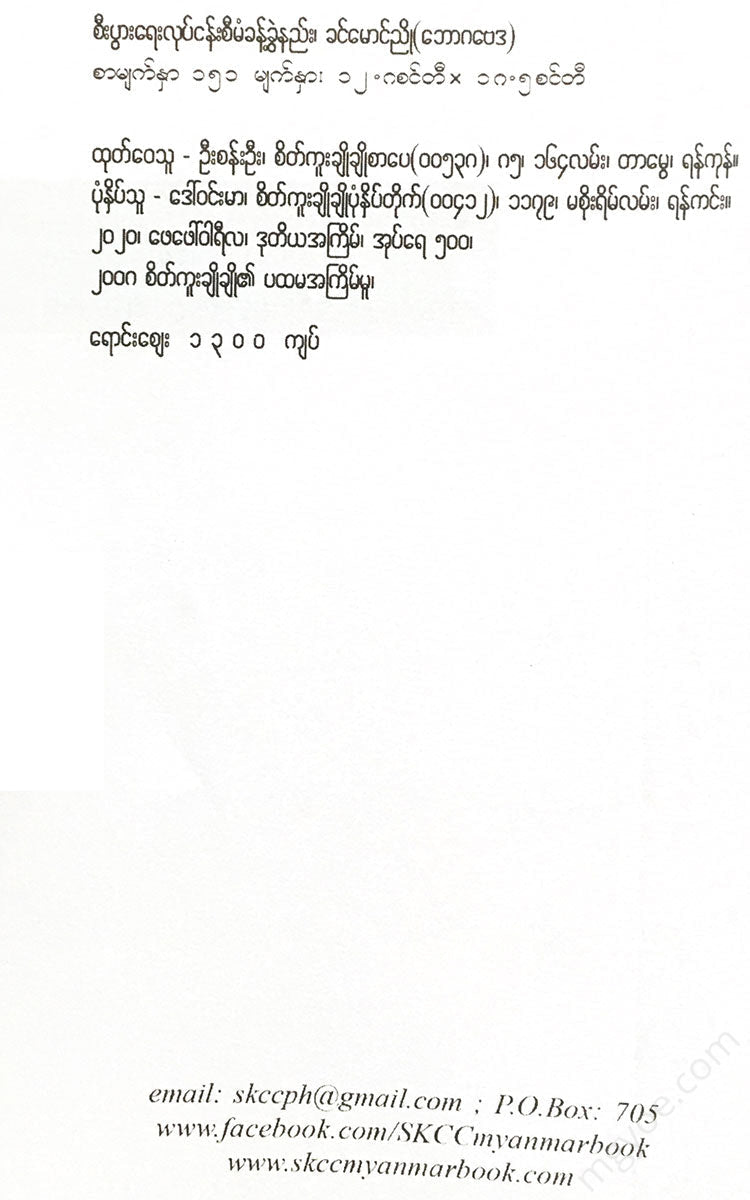 စီးပွားရေးလုပ်ငန်းစီမံခန့်ခွဲနည်း၊ ခင်မောင်ညို(ဘောဂဗေဒ)
စာမျက်နှာ ၁၅၁ မျက်နှား ၁၂.၈စင်တီ× ၁၈.၅စင်တီ
ထုတ်ဝေသူ - ဦးစန်းဦး၊ စိတ်ကူးချိုချိုစာပေ(၀၀၅၃၈)၊ ၈၅၊ ၁၆၄လမ်း၊ တာမွေ၊ ရန်ကုန်။
ပုံနှိပ်သူ - ဒေါ်ဝင်းမာ၊ စိတ်ကူးချိုချိုပုံနှိပ်တိုက်(၀၀၄၁၂)၊ ၁၁၇၉၊ မစိုးရိမ်လမ်း၊ ရန်ကင်း။
၂၀၂၀၊ ဖေဖော်ဝါရီလ၊ ဒုတိယအကြိမ်၊ အုပ်ရေ ၅၀၀၊
၂၀၀၈ စိတ်ကူးချိုချို၏ ပထမအကြိမ်မူ၊
ရောင်းဈေး ၁ ၃ ၀ ၀ ကျပ်
email: skccph@gmail.com ; P.O.Box: 705
www.facebook.com/SKCCmyanmarbook
www.skccmyanmarbook.com